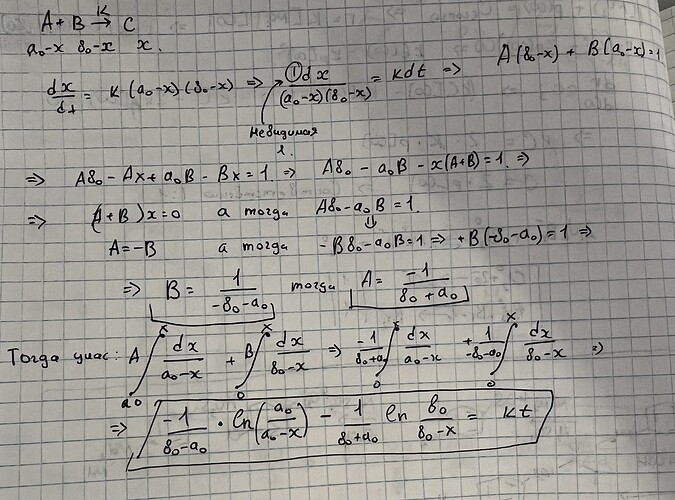 A + B →ᴷ C
a₀-x   в₀-x   x.
dx/dt = K(a₀-x)(в₀-x) ⇒ ①dx/((a₀-x)(в₀-x)) = Kdt ⇒ A(в₀-x) + B(a₀-x)=1
Невидимая
1.
⇒ Aв₀ - Ax + a₀B - Bx = 1. ⇒ Aв₀ - a₀B - x(A+B) = 1. ⇒
⇒ (A+B)x=0 а тогда Aв₀-a₀B = 1.
⇓
A=-B а тогда -Bв₀-a₀B=1 ⇒ +B(-в₀-a₀) = 1 ⇒
⇒ B = 1/(-в₀-a₀) тогда A = -1/(в₀+a₀)
Тогда щас: A ∫ₐ₀ˣ dx/(a₀-x) + B ∫₀ˣ dx/(в₀-x) ⇒ -1/(в₀+a₀) ∫₀ˣ dx/(a₀-x) + 1/(-в₀-a₀) ∫₀ˣ dx/(в₀-x) ⇒
⇒ -1/(в₀-a₀) · ln(a₀/(a₀-x)) - 1/(в₀+a₀) ln в₀/(в₀-x) = Kt